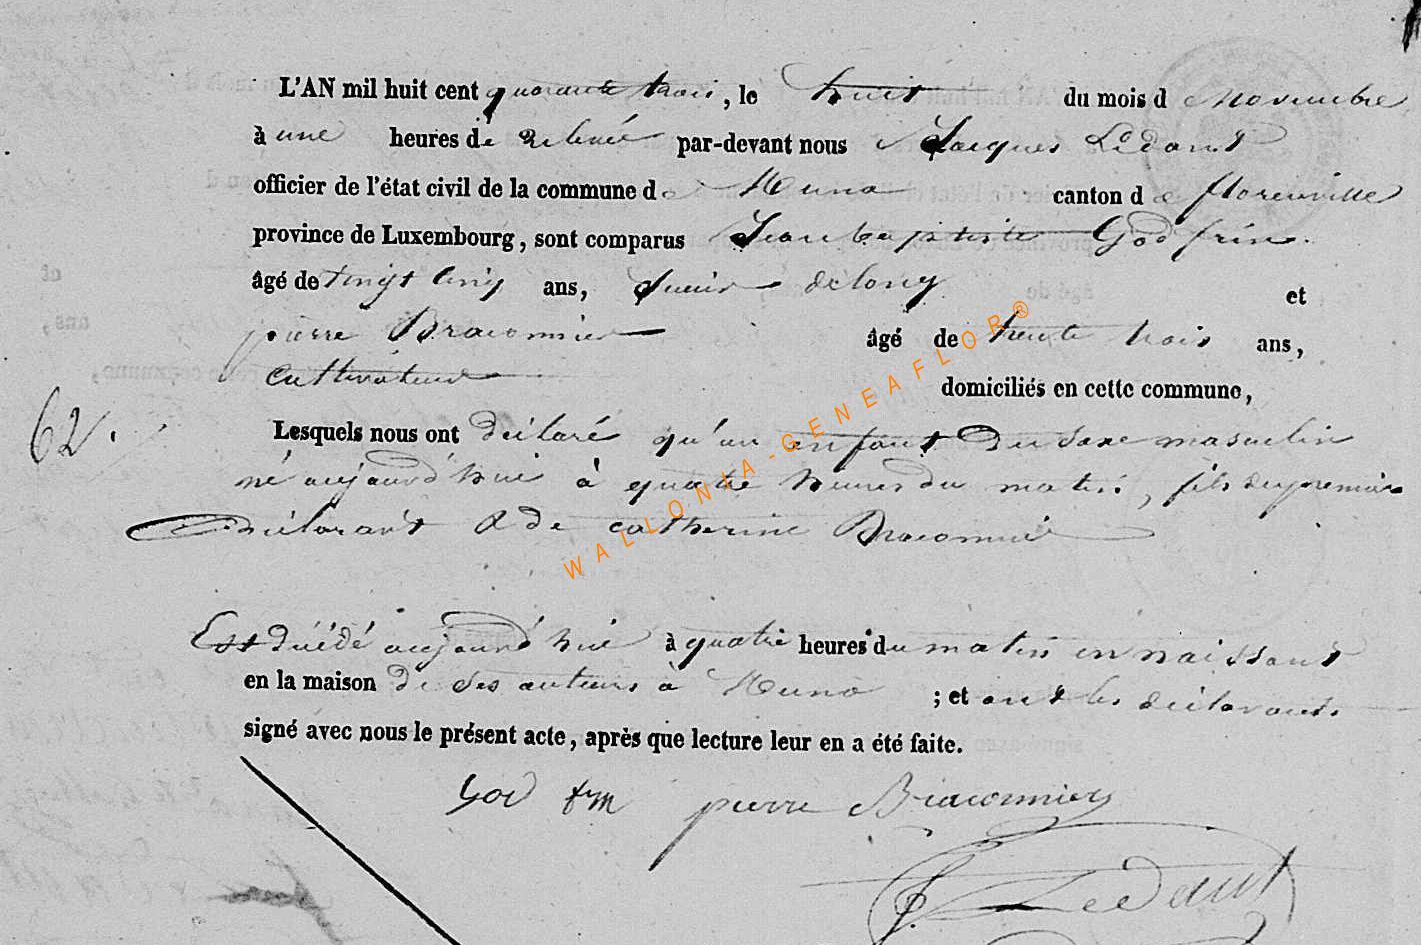 L'AN mil huit cent quarante trois, le huit du mois de novembre
à une heures de relevée par-devant nous Jacques Lédant
officier de l'état civil de la commune de Muno canton de florenville
province de Luxembourg, sont comparus Jean baptiste Godfrin
âgé de vingt cinq ans, Scieur de long et
pierre Braconnier âgé de trente trois ans,
cultivateur domiciliés en cette commune,
62.
Lesquels nous ont déclaré qu'un enfant du sexe masculin
né aujourd'hui à quatre heures du matin, fils du premier
déclarant & de catherine Braconnier
Est décédé aujourd'hui à quatre heures du matin en naissant
en la maison de ses auteurs à Muno ; et ont les déclarants
signé avec nous le présent acte, après que lecture leur en a été faite.
God frin pierre Braconnier
J. Lédant
WALLONIA-GENEAFLOR®